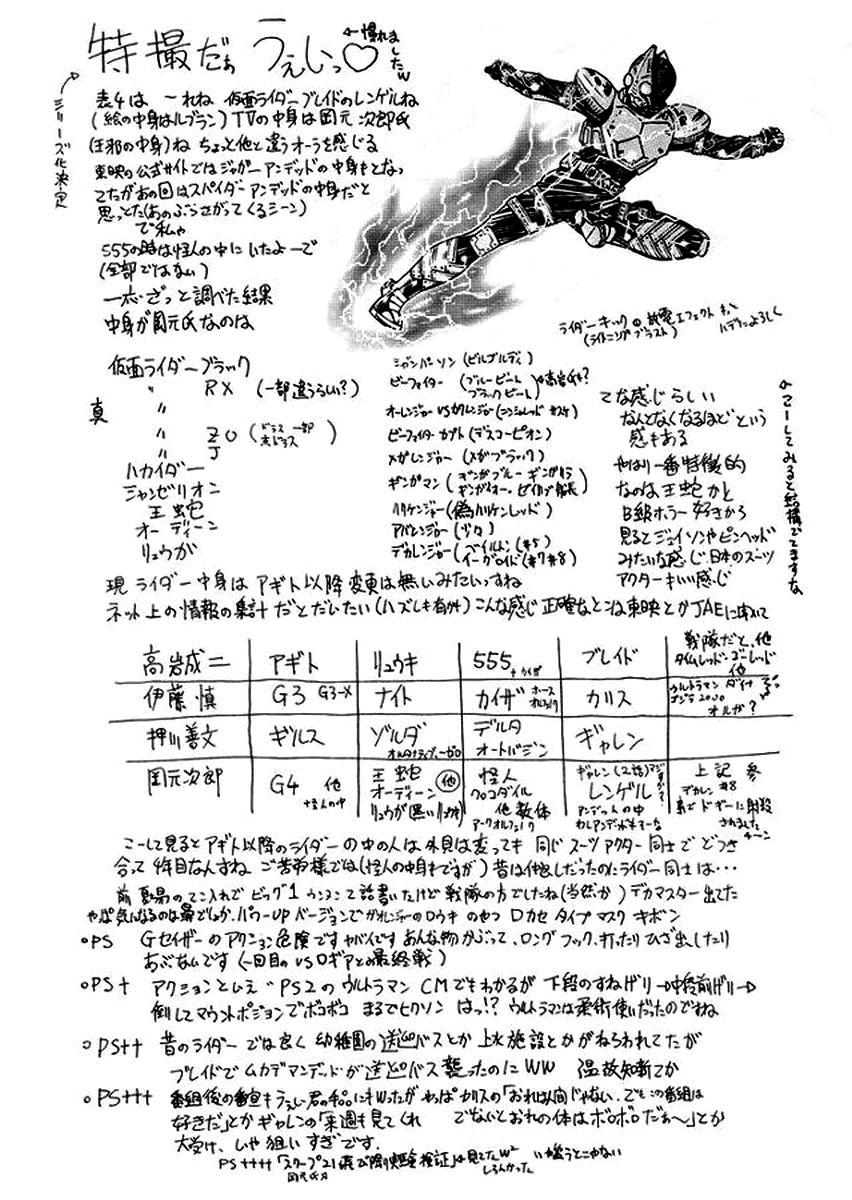 特撮だぁ うぇしっ♡
←慣れましたw
シリーズ化決定
表4は これね 仮面ライダーブレイドのレンゲルね
(絵の中身はルブラン) TVの中身は岡元 次郎氏
(王邪の中身)ね ちょっと他と違うオーラを感じる
東映の公式サイトではジャガーアンデッドの中身もとなっ
てたがあの回はスパイダーアンデッドの中身だと
思っとた(あのぶらさがってくるシーン)
で私ゃ
555の時は怪人の中にいたよーで
(全部ではない)
一応ざっと調べた結果
中身が岡元氏なのは
ライダーキックの放電エフェクト
(ライトニングブラスト)
ハデによろしく
仮面ライダーブラック
〃 RX (一部違うらしい?)
真 〃
〃 ZO (ドラス 一部
〃 J
ハカイダー
シャンゼリオン
王蛇
オーディーン
リュウガ
ジャンパーソン (ビルゴルディ)
ビーファイター (ブルービート ブラックビート) ←高岩氏も?
オーレンジャー VS カクレンジャー (ニンジャレッド
ビーファイターカブト (デスコーピオン)
メガレンジャー (メガブラック)
ギンガマン (ギンガブルー ギンガリラ
ハリケンジャー (偽ハリケンレッド)
アバレンジャー (少々)
デカレンジャー (ベイルドン (#5)
イーガロイド (#7 #8)
てな感じらしい
なんとなくなるほどという
感もある
やはり一番特徴的
なのは王蛇かと
B級ホラー好きから
見るとジェイソンやピンヘッド
みたいな感じ 日本のスーツ
アクターもいい感じ
←こーしてみると結構でてますな
現 ライダー中身は アギト以降 変更は無いみたいっすね
ネット上の情報の集計だとだいたい (ハズレも有外) こんな感じ 正確なとこは東映とかJAEに聞いて
高岩成二 アギト リュウキ 555 +カイザ ブレイド 戦隊だと、他 タイムレッド・ゴーレッド 他
伊藤慎 G3 G3-X ナイト カイザ ホースオルフェノク カリス ウルトラマン ダイナ ゴジラ2000 オルガ?
押川善文 ギルス ゾルダ オルタナティブ・ゼロ デルタ オートバジン ギャレン
岡元次郎 G4 他 +怪人の中 王蛇 オーディーン 他 リュウガ(黒いリュウキ) 怪人 クロコダイル 他数体 アークオルフェノク ギャレン(2話) レンゲル アンデットの中 上記 参 デカレン #8 ドギーに射殺されました
こーして見るとアギト以降のライダーの中の人は外見は変っても 同じスーツアクター同士で どつき
合って 4年目なんすね ご苦労様では(怪人の中身もですが) 昔は他出しだったのにライダー同士は・・・
前 夏場のてこ入れで ビッグ1 ウンヌンて話書いたけど 戦隊の方でしたね(当然か) デカマスター出てた
やっぱ気になるのは 鼻でしか、パワーUPバージョンでガオレンジャーのロウキ のやつ ロカセ タイプ マスク キボン
○PS Gセイザーのアクション危険ですヤバイです あんな物かぶって、ロングフック、打ったり ひざ出したり
あぶないです (一回目の vs ロギアとの最終戦)
○PS+ アクションといえばPS2のウルトラマン CMでもわかるが 下段のすねげり→中段前げり→
倒してマウントポジョンでボコボコ まるでヒクソン はっ!? ウルトラマンは柔術使いだったのですね
○PS++ 昔のライダーでは良く 幼稚園の送迎バスとか 上水施設とかがねらわれてたが
ブレイドで ムカデアンデッドが 送迎バス襲ったのに WW 温故知新てか
○PS+++ 番組後の番宣も うぇしい君のデロにも Wったが やっぱカリスの「おれは人間じゃない、でもこの番組は
好きだ」とか ギャレンの「来週も見てくれ でないとおれの体はボロボロだぁ～」とか
大受け、しゃ狙いすぎです、
PS++++ 「スクープ21
岡元氏